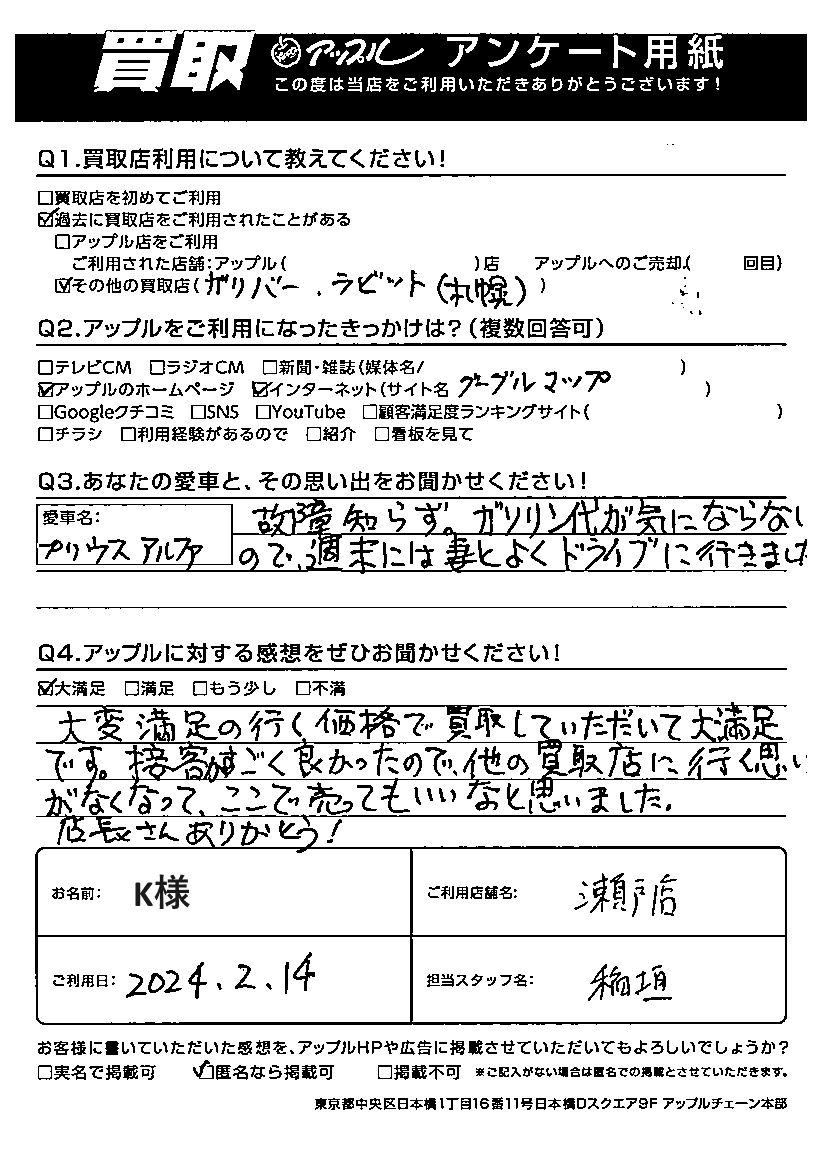 買取 アップル アンケート用紙
この度は当店をご利用いただきありがとうございます!
Q1.買取店利用について教えてください!
□買取店を初めてご利用
☑過去に買取店をご利用されたことがある
□アップル店をご利用
ご利用された店舗:アップル( )店 アップルへのご売却( 回目)
☑その他の買取店( ガリバー、ラビット(札幌) )
Q2.アップルをご利用になったきっかけは?(複数回答可)
□テレビCM □ラジオCM □新聞・雑誌(媒体名/ )
☑アップルのホームページ ☑インターネット(サイト名 グーグルマップ )
□Googleクチコミ □SNS □YouTube □顧客満足度ランキングサイト( )
□チラシ □利用経験があるので □紹介 □看板を見て
Q3.あなたの愛車と、その思い出をお聞かせください!
愛車名:
プリウスアルファ
故障知らず。ガソリン代が気にならない
ので、週末には妻とよくドライブに行きました
Q4.アップルに対する感想をぜひお聞かせください!
☑大満足 □満足 □もう少し □不満
大変満足の行く価格で買取していただいて大満足
です。接客がすごく良かったので、他の買取店に行く思い
がなくなって、ここで売ってもいいなと思いました。
店長さんありがとう!
お名前: K様
ご利用店舗名: 瀬戸店
ご利用日: 2024.2.14
担当スタッフ名: 稲垣
お客様に書いていただいた感想を、アップルHPや広告に掲載させていただいてもよろしいでしょうか?
□実名で掲載可 ☑匿名なら掲載可 □掲載不可 ※ご記入がない場合は匿名での掲載とさせていただきます。
東京都中央区日本橋1丁目16番11号日本橋Dスクエア9F アップルチェーン本部